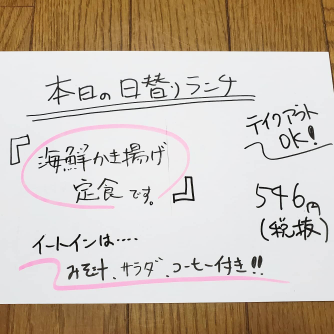 本日の日替りランチ
テイクアウト
OK!
『海鮮かき揚げ
定食です。』
546円
(税抜)
イートインは････
みそ汁、サラダ、コーヒー付き!!